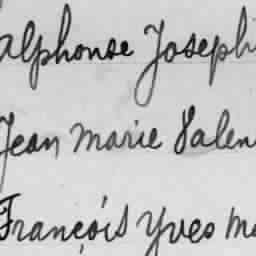 Alphonse Joseph
Jean Marie Valen
François Yves Ma